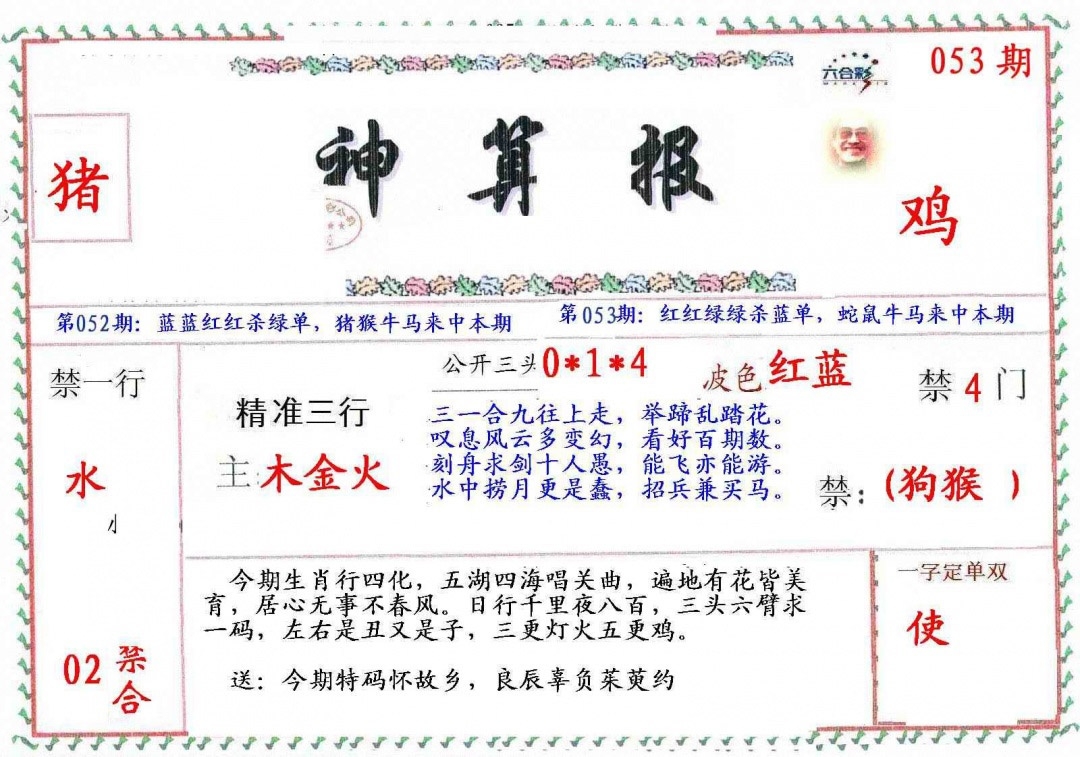 053期
六合彩
猪
神算报
鸡
第052期：蓝蓝红红杀绿单，猪猴牛马来中本期
第053期：红红绿绿杀蓝单，蛇鼠牛马来中本期
禁一行
水
02
禁合
精准三行
主:木金火
公开三头0*1*4
波色红蓝
三一合九往上走，举蹄乱踏花。
叹息风云多变幻，看好百期数。
刻舟求剑十人愚，能飞亦能游。
水中捞月更是蠢，招兵兼买马。
禁4门
禁：(狗猴 )
今期生肖行四化，五湖四海唱关曲，遍地有花皆美
育，居心无事不春风。日行千里夜八百，三头六臂求
一码，左右是丑又是子，三更灯火五更鸡。
送：今期特码怀故乡，良辰辜负茱萸约
一字定单双
使